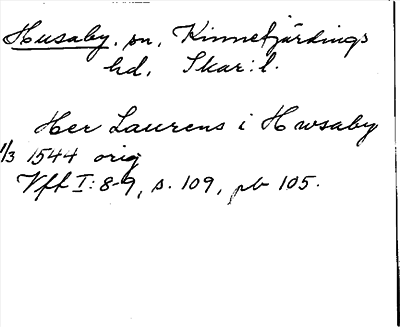 Husaby, sn, Kinnefjärdings
hd, Skar. l.
Her Laurens i Hwsaby
1/3 1544 orig
Vff I: 8-9, s. 109, pb 105.